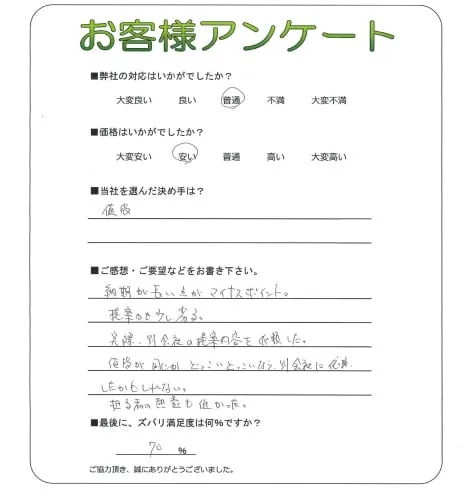 お客様アンケート
■弊社の対応はいかがでしたか?
大変良い 良い 普通 不満 大変不満
■価格はいかがでしたか?
大変安い 安い 普通 高い 大変高い
■当社を選んだ決め手は?
値段
■ご感想・ご要望などをお書き下さい。
納期が長い点がマイナスポイント。
提案力も少し劣る。
実際、別会社の提案内容を依頼した。
値段が とっこいとっこいなら、別会社に依頼
したかもしれない。
担当者の熱意も低かった。
■最後に、ズバリ満足度は何%ですか?
70 %
ご協力頂き、誠にありがとうございました。